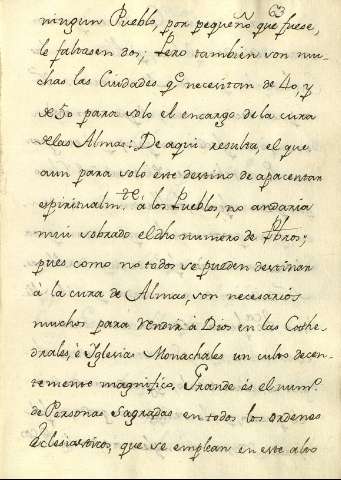 63
ningun Pueblo, por pequeño que fuese,
le faltasen dos; Pero tambien son mu-
chas las Ciudades q.e necesitan de 40, y
de 50 para solo el encargo de la cura
de las Almas: De aqui resulta, el que
aun para solo este destino de apacentar
espiritualm.te á los Pueblos, no andaria
mui sobrado el dho numero de
pues como no todos se pueden destinar
à la cura de Almas, son necesarios
muchos para rendir à Dios en las Cathe-
drales, è Iglesias Monachales un culto decen-
temente magnifico, Grande és el num.o
de Personas Sagradas en todos los ordenes
Eclesiasticos, que se emplean en este alto